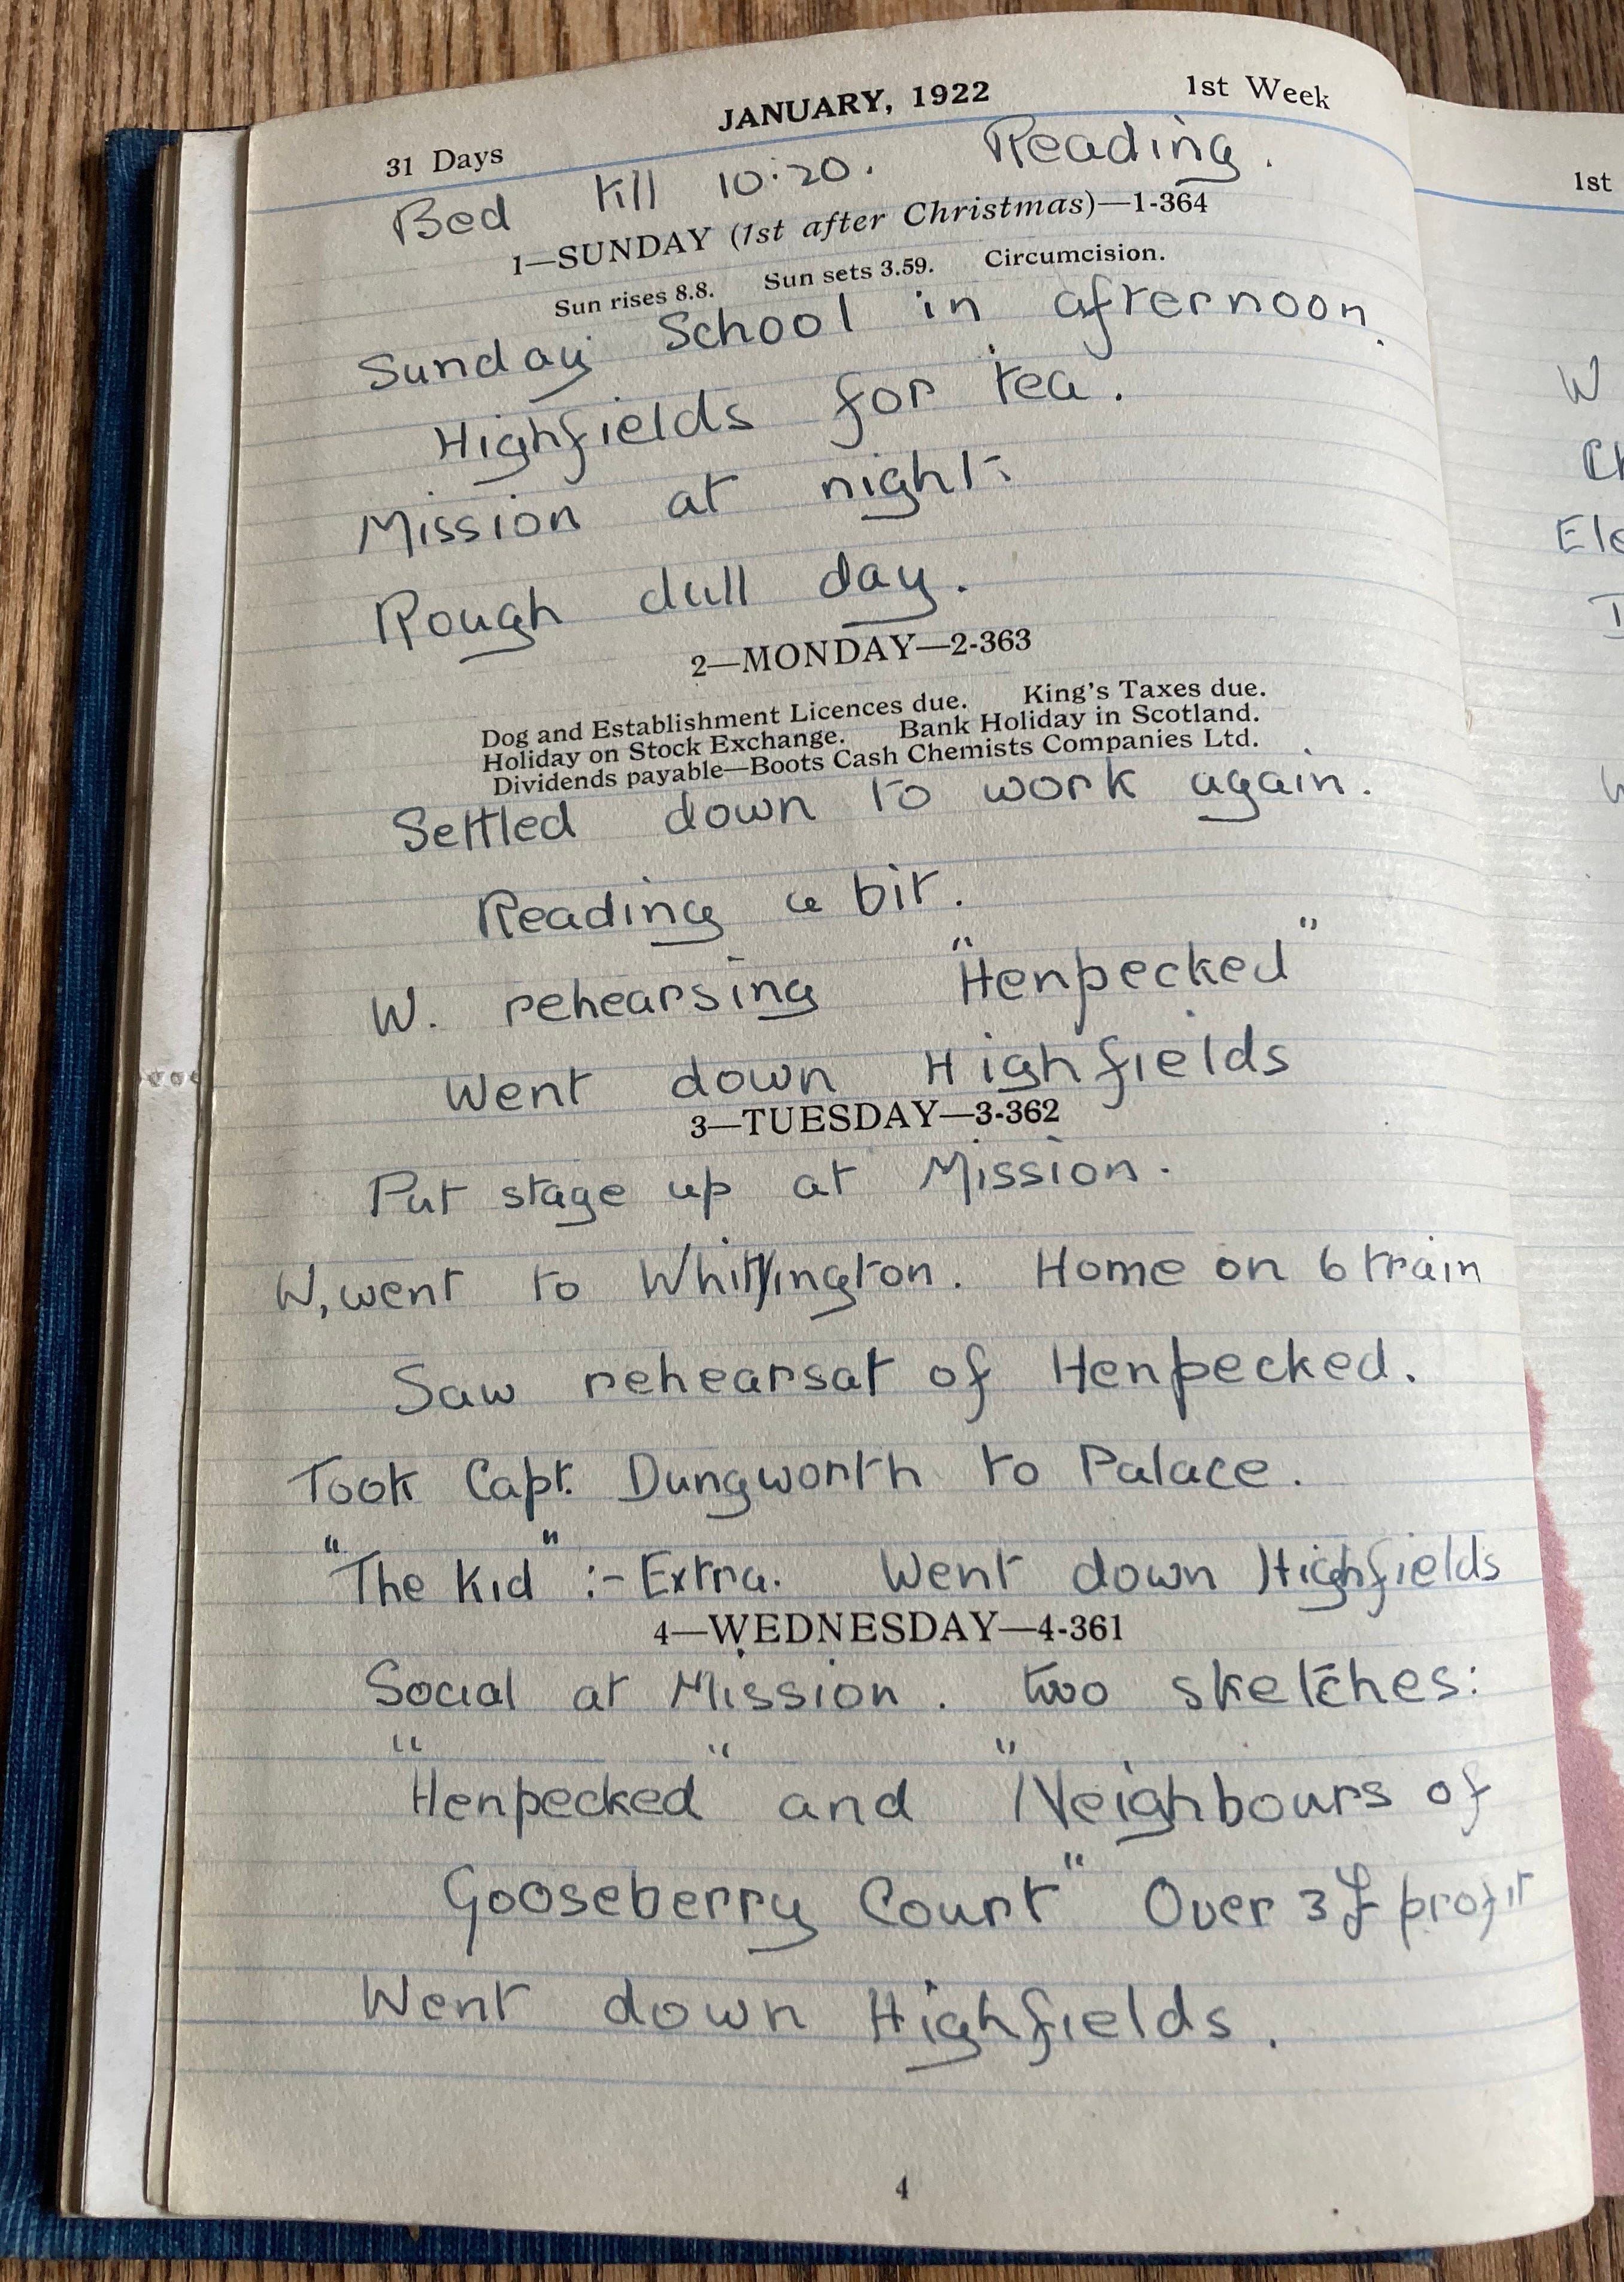 JANUARY, 1922
31 Days 1st Week
Bed till 10:20. Reading.
1—SUNDAY (1st after Christmas)—1-364
Sun rises 8.8. Sun sets 3.59. Circumcision.
Sunday School in afternoon.
Highfields for tea.
Mission at night.
Rough dull day.
2—MONDAY—2-363
Dog and Establishment Licences due. King's Taxes due.
Holiday on Stock Exchange. Bank Holiday in Scotland.
Dividends payable—Boots Cash Chemists Companies Ltd.
Settled down to work again.
Reading a bit.
W. rehearsing "Henpecked"
Went down Highfields
3—TUESDAY—3-362
Put stage up at Mission.
W, went to Whittington. Home on 6 train
Saw rehearsat of Henpecked.
Took Capt. Dungworth to Palace.
"The Kid" :- Extra. Went down Highfields
4—WEDNESDAY—4-361
Social at Mission. two sketches:
"Henpecked" and "Neighbours of
Gooseberry Court" Over 3£ profit
Went down Highfields.
4
1st
W
Ch
Ele